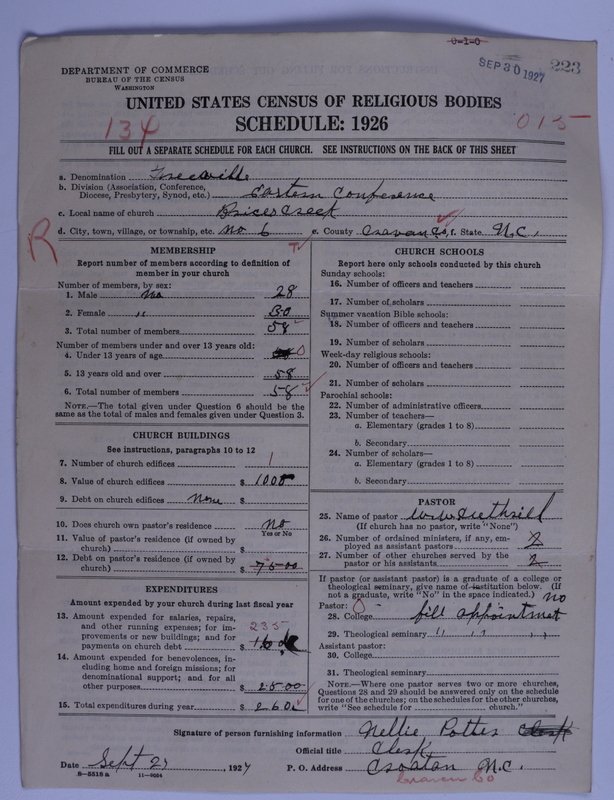 0-1-0
SEP 30 1927
223
DEPARTMENT OF COMMERCE
BUREAU OF THE CENSUS
WASHINGTON
UNITED STATES CENSUS OF RELIGIOUS BODIES
SCHEDULE: 1926
134
015
FILL OUT A SEPARATE SCHEDULE FOR EACH CHURCH. SEE INSTRUCTIONS ON THE BACK OF THIS SHEET
a. Denomination
b. Division (Association, Conference, Diocese, Presbytery, Synod, etc.) Eastern Conference
c. Local name of church Brices Creek
d. City, town, village, or township, etc. No 6 e. County Craven Co, f. State N.C.
R
MEMBERSHIP
Report number of members according to definition of
member in your church
Number of members, by sex:
1. Male no 28
2. Female " 30
3. Total number of members 58
Number of members under and over 13 years old:
4. Under 13 years of age 0
5. 13 years old and over 58
6. Total number of members 58
NOTE.—The total given under Question 6 should be the
same as the total of males and females given under Question 3.
CHURCH BUILDINGS
See instructions, paragraphs 10 to 12
7. Number of church edifices 1
8. Value of church edifices $ 1000
9. Debt on church edifices None $
10. Does church own pastor's residence No
Yes or No
11. Value of pastor's residence (if owned by
church) $
12. Debt on pastor's residence (if owned by
church) $ 75.00
EXPENDITURES
Amount expended by your church during last fiscal year
13. Amount expended for salaries, repairs,
and other running expenses; for im-
provements or new buildings; and for
payments on church debt $ 235
14. Amount expended for benevolences, in-
cluding home and foreign missions; for
denominational support; and for all
other purposes $ 25.00
15. Total expenditures during year $ 260
CHURCH SCHOOLS
Report here only schools conducted by this church
Sunday schools:
16. Number of officers and teachers
17. Number of scholars
Summer vacation Bible schools:
18. Number of officers and teachers
19. Number of scholars
Week-day religious schools:
20. Number of officers and teachers
21. Number of scholars
Parochial schools:
22. Number of administrative officers
23. Number of teachers—
a. Elementary (grades 1 to 8)
b. Secondary
24. Number of scholars—
a. Elementary (grades 1 to 8)
b. Secondary
PASTOR
25. Name of pastor
(If church has no pastor, write "None")
26. Number of ordained ministers, if any, em-
ployed as assistant pastors 2
27. Number of other churches served by the
pastor or his assistants 2
If pastor (or assistant pastor) is a graduate of a college or
theological seminary, give name of institution below. (If
not a graduate, write "No" in the space indicated.) no
Pastor: 0 -
28. College fill appointment
29. Theological seminary " " "
Assistant pastor:
30. College
31. Theological seminary
NOTE.—Where one pastor serves two or more churches,
Questions 28 and 29 should be answered only on the schedule
for one of the churches; on the schedules for the other churches,
write "See schedule for church."
Signature of person furnishing information Nellie Potter Clerk
Official title Clerk
Date Sept 27, 1927 P. O. Address Croatan N.C.
8-5518a 11-9264 Craven Co